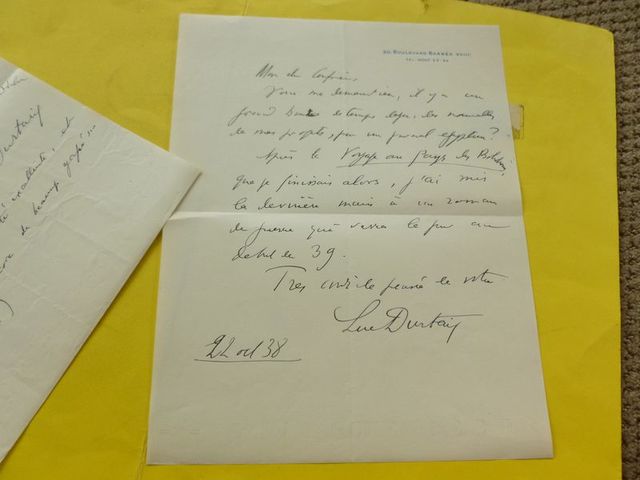 20, BOULEVARD BARBÈS XVIIIe
Mon cher Confrère
Vous me demandiez, il y a un
grand bout de temps déjà, des nouvelles
de mes projets, pour un journal égyptien?
Après le Voyage au Pays des
que je finissais alors, j'ai mis
la dernière main à un roman
de qui verra le jour au
début de 39.
Très cordiale pensée de votre
Luc Durtain
22 oct 38
Durtain
excellente, et
de beaucoup